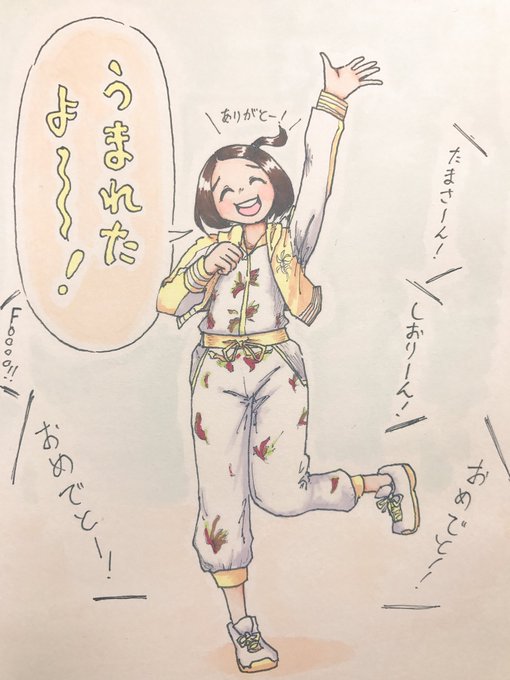 うまれた
よ〜〜!
ありがとー!
たまさーん!
しおりーん!
Foooo!!
おめでとー!
おめでと!